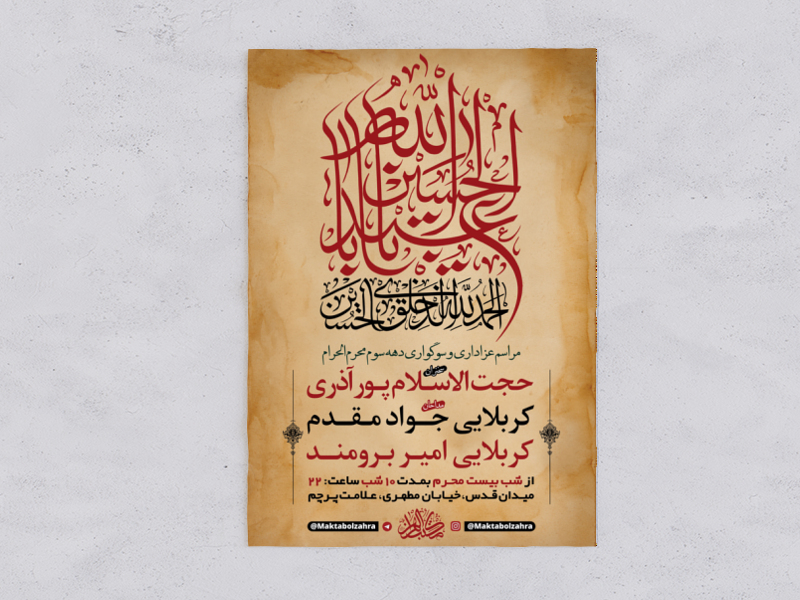 الحمدلله الذی خلق الحسین
مراسم عزاداری و سوگواری دهه سوم محرم الحرام
حجت الاسلام پور آذری
کربلایی جواد مقدم
کربلایی امیر برومند
از شب بیست محرم بمدت ۱۰ شب ساعت: ۲۲
میدان قدس، خیابان مطهری، علامت پرچم
@Maktabolzahra @Maktabolzahra